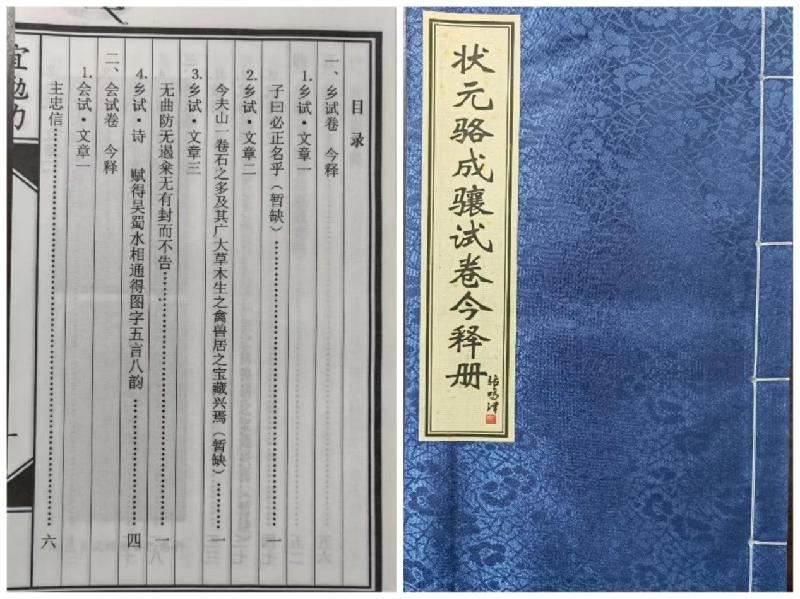 目录
一、乡试卷 今释
1.乡试·文章一
子曰必正名乎（暂缺）……一
2.乡试·文章二
今夫山一卷石之多及其广大草木生之禽兽居之宝藏兴焉（暂缺）……一
3.乡试·文章三
无曲防无遏籴无有封而不告……一
4.乡试·诗 赋得吴蜀水相通得图字五言八韵……四
二、会试卷 今释
1.会试·文章一
主忠信……六
宜勉力
状元骆成骧试卷今释册